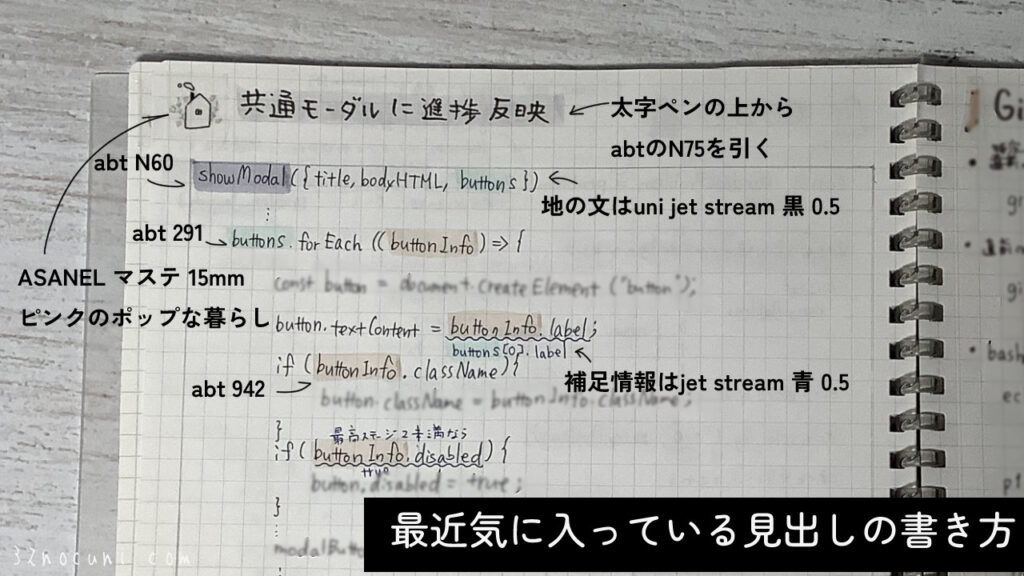 共通モーダルに進捗反映
太字ペンの上から
abtのN75を引く
abt N60
showModal({title, bodyHTML, buttons})
地の文はuni jet stream 黒 0.5
⋮
abt 291
buttons.forEach((buttonInfo) => {
ASANEL マステ 15mm
ピンクのポップな暮らし
const button = document.createElement("button");
button.textContent = buttonInfo.label;
buttons[0].label
if (buttonInfo.className){
補足情報はjet stream 青 0.5
abt 942
button.className = buttonInfo.className;
}
最高ステージ2未満なら
if (buttonInfo.disabled) {
true
button.disabled = true;
}
⋮
最近気に入っている見出しの書き方
32nocuni.com
Gi
bash